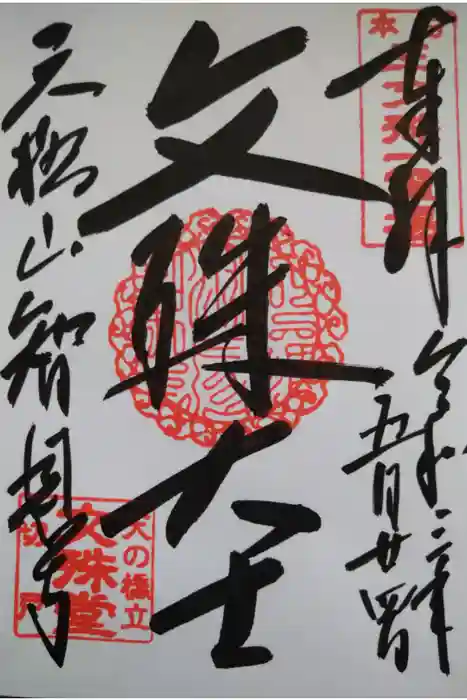 奉拝
令和 年
五月廿四日
文殊大士
天橋山智恩寺
天の橋立
文殊堂